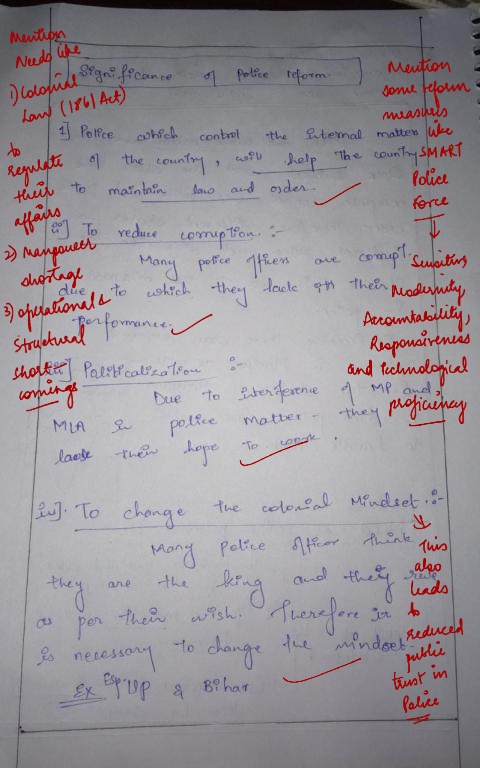 Mention
Needs like
1) Colonial
Law (1861 Act)
to
regulate
their
affairs
2) Manpower
shortage
3) operational &
Structural
short-
comings
Significance of Police reform.
i] Police which control the internal matter
of the country, will help the country
to maintain law and order.
ii] To reduce corruption. :-
Many police officers are corrupt
due to which they lack their
performance.
iii] Politicalization :-
Due to interference of MP and
MLA in police matter - they
their hope to work.
iv]. To change the colonial Mindset. :-
Many Police officer think
they are the king and they rule
as per their wish. Therefore it
is necessary to change the mindset.
Ex Esp. UP & Bihar
Mention
some reform
measures
like
SMART
Police
Force
Sensitive
Modernity,
Accountability,
Responsiveness
and Technological
proficiency
This
also
leads
to
reduced
public
trust in
Police